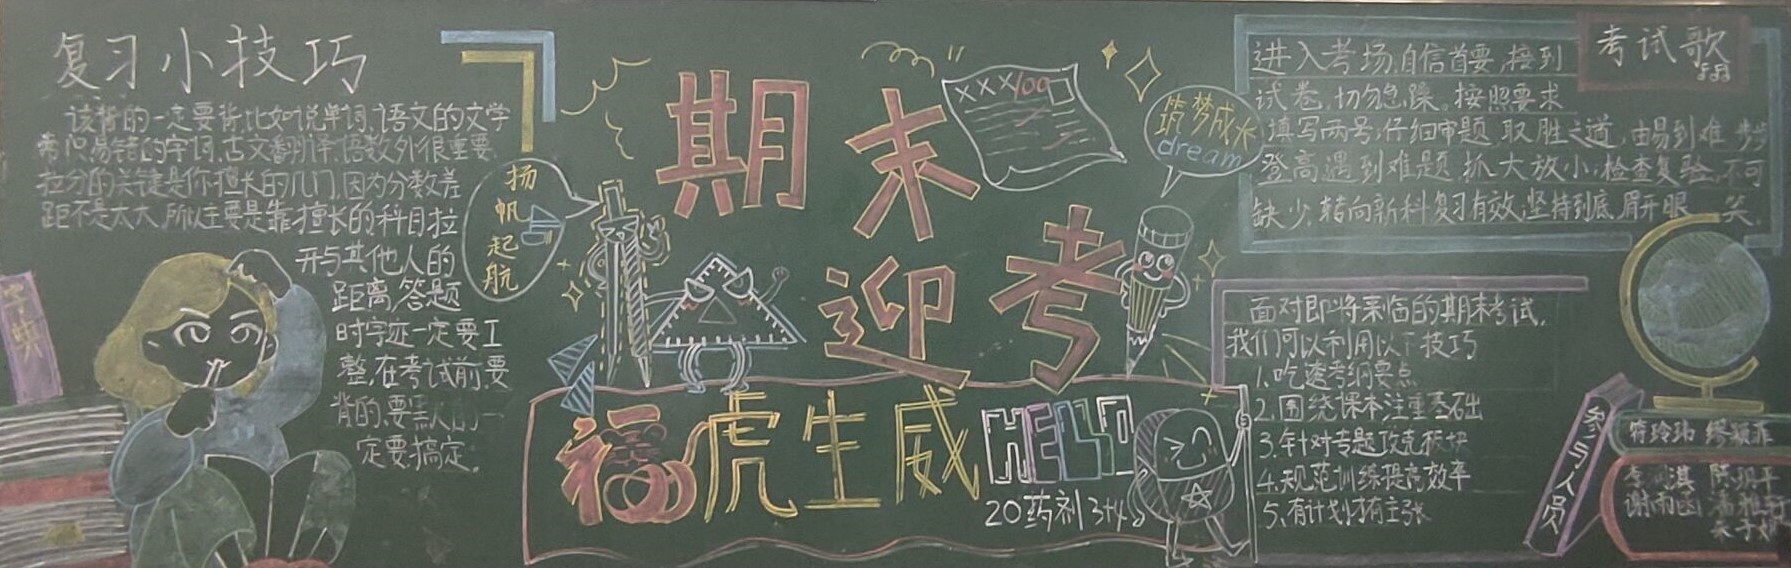 复习小技巧
该背的一定要背,比如说单词,语文的文学
常识,易错的字词,古文翻译,语数外很重要,
拉分的关键是你擅长的几门,因为分数差
距不是太大,所以主要是靠擅长的科目拉
开与其他人的
距离,答题
时字迹一定要工
整,在考试前,要
背的,要默的一
定要搞定。
字典
扬
帆
起
航
期末
迎考
XXX100
筑梦成长
dream
福虎生威
HELLO
20药剂3+4
考试歌
进入考场,自信首要,接到
试卷,切勿急躁。按照要求
填写两号,仔细审题,取胜之道,由易到难,步步
登高,遇到难题,抓大放小,检查复验,不可
缺少,转向新科,复习有效,坚持到底,眉开眼笑。
面对即将来临的期末考试,
我们可以利用以下技巧
1.吃透考纲要点
2.围绕课本注重基础
3.针对专题攻克板块
4.规范训练提高效率
5.有计划才有主张
参与人员